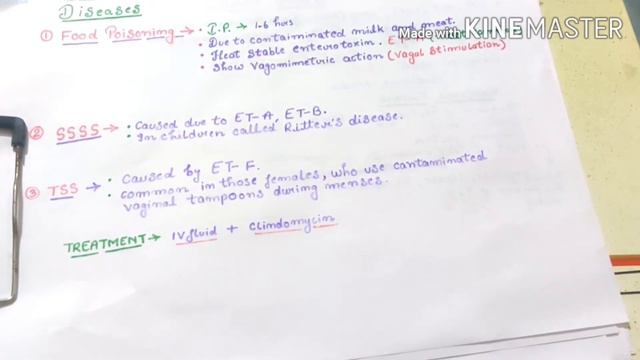 Diseases
① Food Poisoning → • I.P. → 1-6 hors
• Due to contaiminated milk and meat.
• Heat Stable enterotoxin.
• Show Vagomimetric action (Vagal Stimulation)
② SSSS → • Caused due to ET-A, ET-B.
• In children called Ritter's disease.
③ TSS → • Caused by ET-F.
• Common in those females, who use contaminated
vaginal tampoons during menses.
TREATMENT → IV fluid + Clindomycin
Made with KINEMASTER